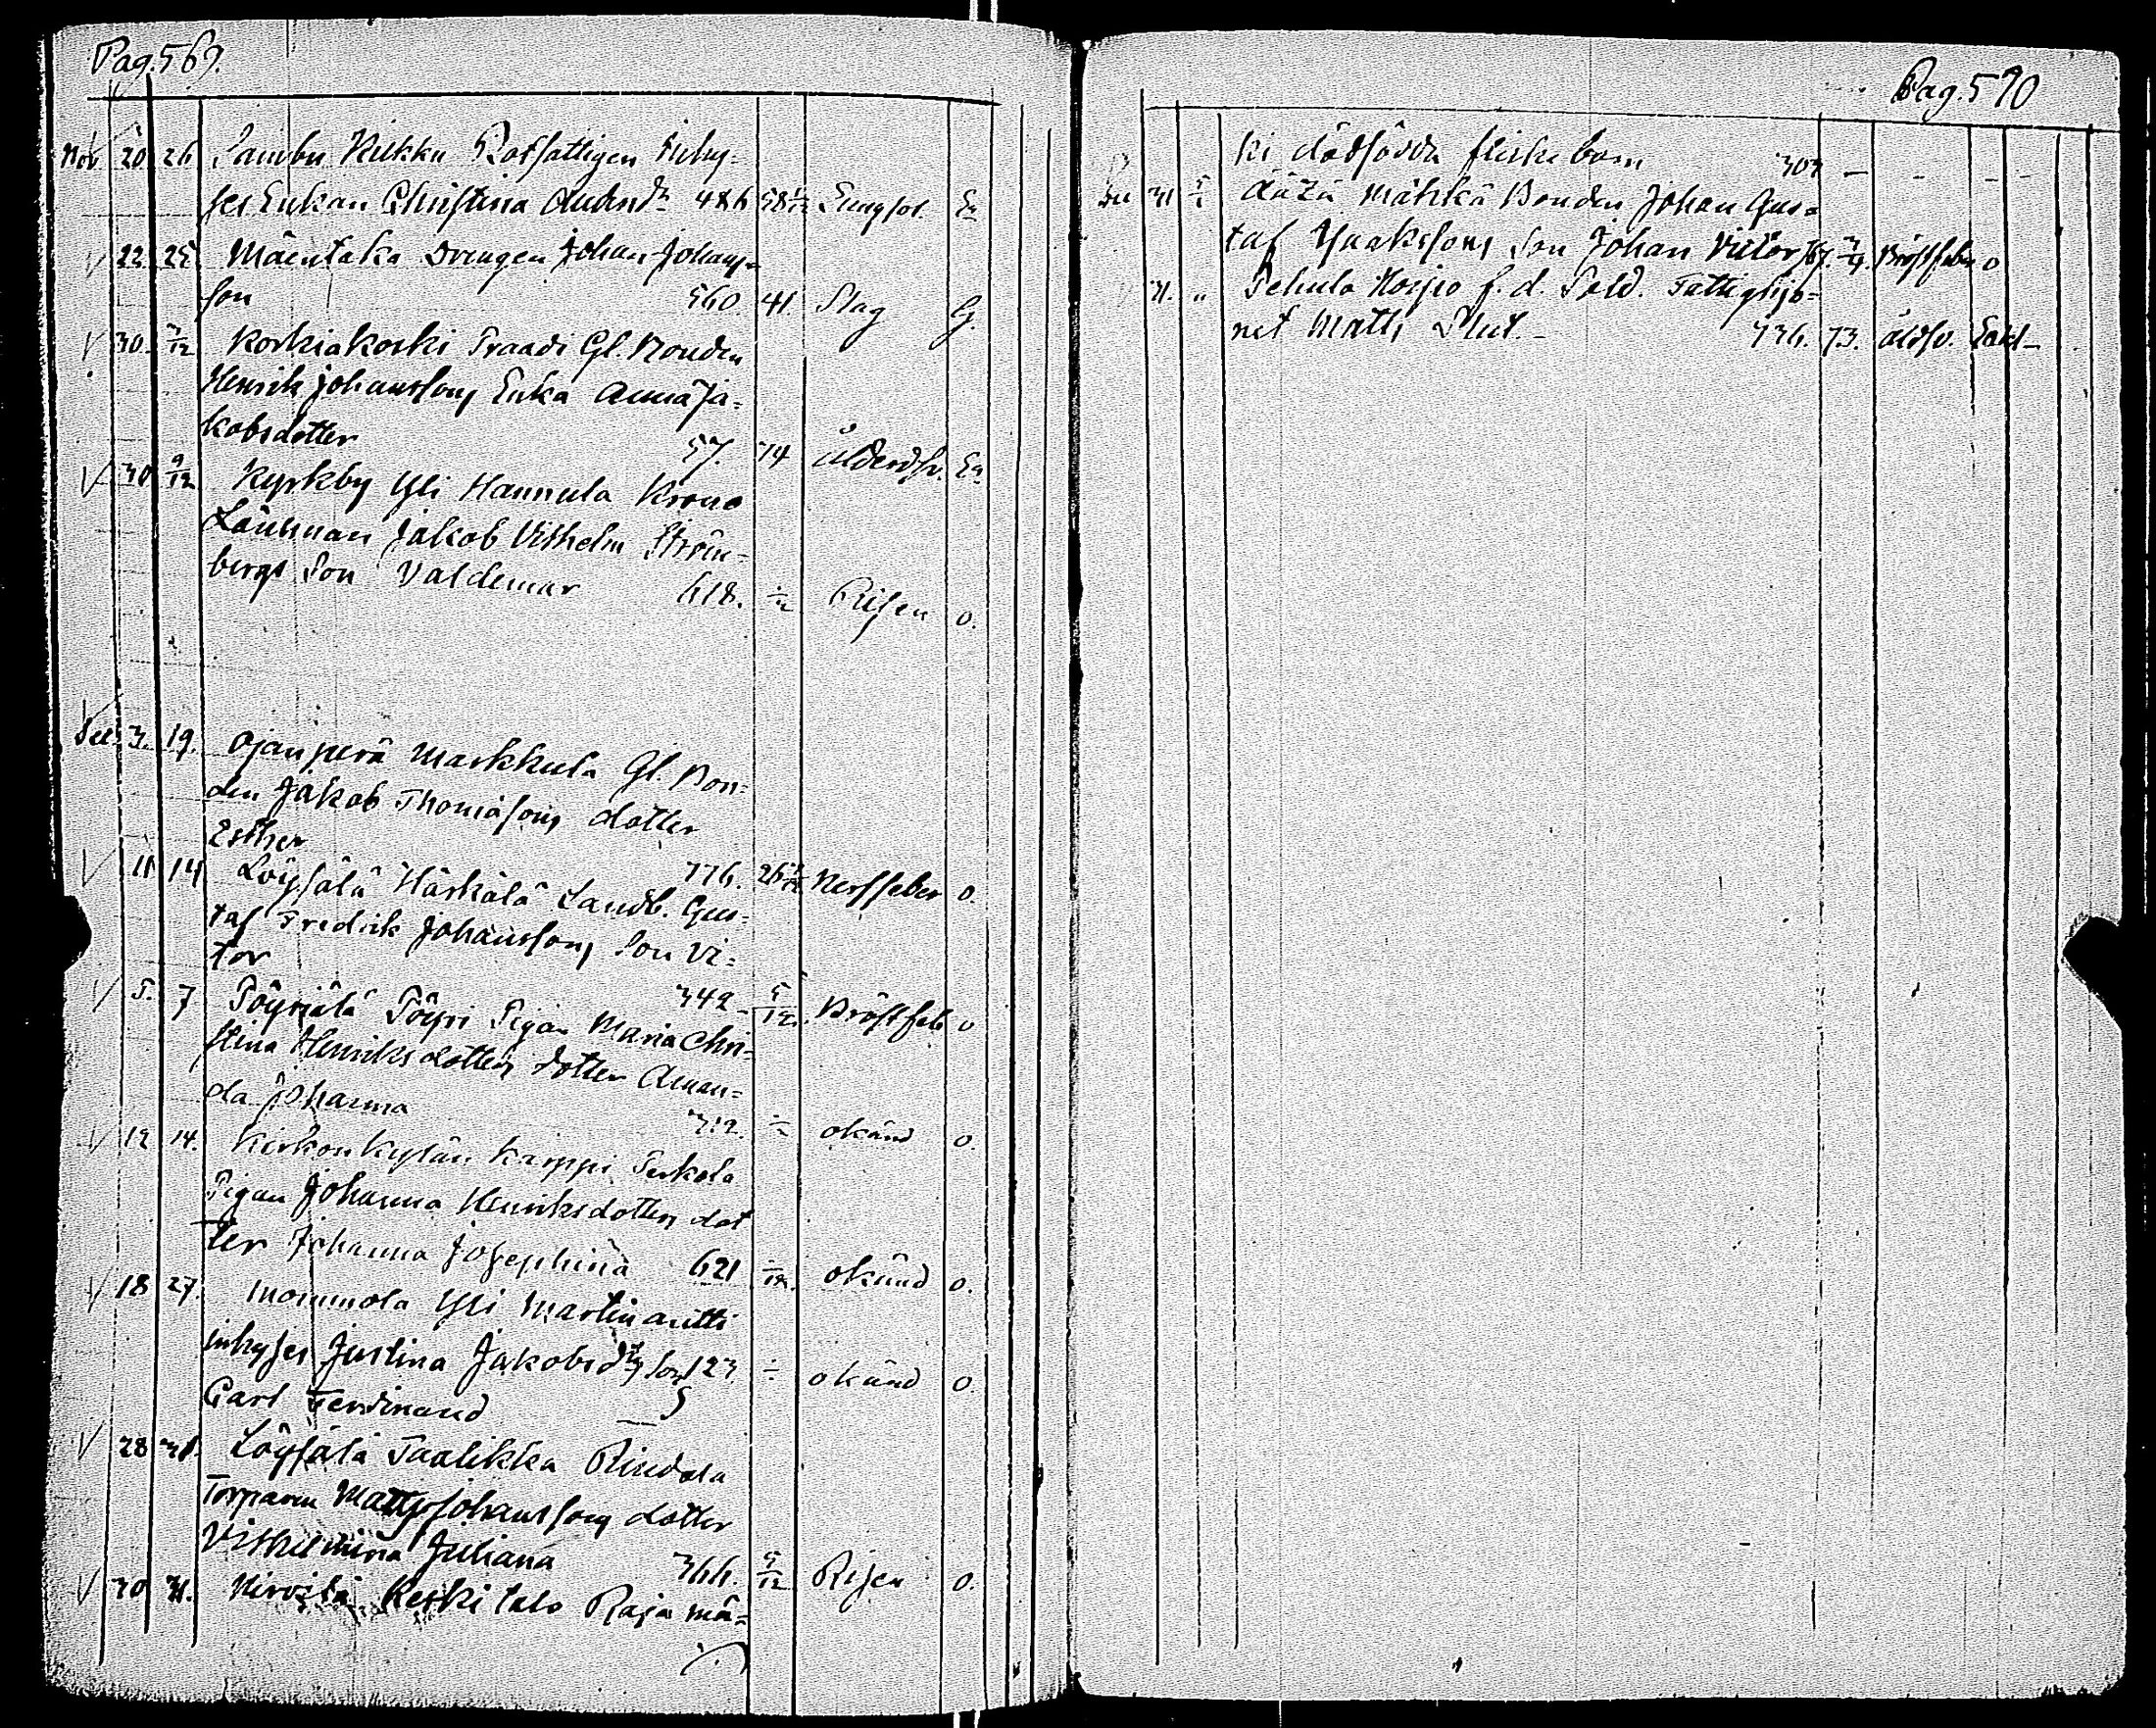 Pag. 569.
Nov 20 26 Kukku Rotfattigen Inhy=
ses Enkan Christina 486 58 Lungsot. En
22 25 Mäentaka Drengen Johan Johans=
son 560. 41. Slag G.
30 2/12 Korkiakoski Praadi Gl. Bonden
Henrik Johanssons Enka Anna Ja=
kobsdotter 57. 74 Ålderdsv. En.
30 9/12 Kyrkby Yli Hannula Krono
Länsman Jakob Vilhelm Ström=
bergs Son Valdemar 618. Risen o.
Dec. 3. 19. Ojanperä Markkula Gl. Bon=
den Jakob Thomasons dotter
Esther 776. 26 Nerffeber o.
11 14 Löysälä Härkälä Landb. Gus=
taf Fredrik Johanssons Son Vi=
tor 342 5/12. Bröstfeb o
5. 7 Pöyriälä Pöyri Pigan Maria Chri=
stina Henriksdotters dotter Aman=
da Johanna 312. okänd o.
12 14. Kirkonkylän Karppi Perkola
Pigan Johanna Henriksdotters dot
ter Johanna Josephina 621 okänd o.
18 27. Mommola Yli Martin antti
inhyses Justina Jakobsdtrs Son 123 okänd o.
Carl Ferdinand
28 31. Löysälä Taalikka Rindala
Torparen Matts Johanssons dotter
Vilhelmina Juliana 366. 5/12 Risen o.
30 31. Hirvelä Keskitalo Raja mä=
Pag. 570
ki dödfödda flickebarn 307 — - - -
Dec 31 Mähkä Bonden Johan Gus=
taf Isaakssons Son Johan Victor Bröstfeber o
31. „ Pehula Korpio f. d. Sold. Fattighjo=
net Matts Slut. - 736. 73. åldsv. Enkl-